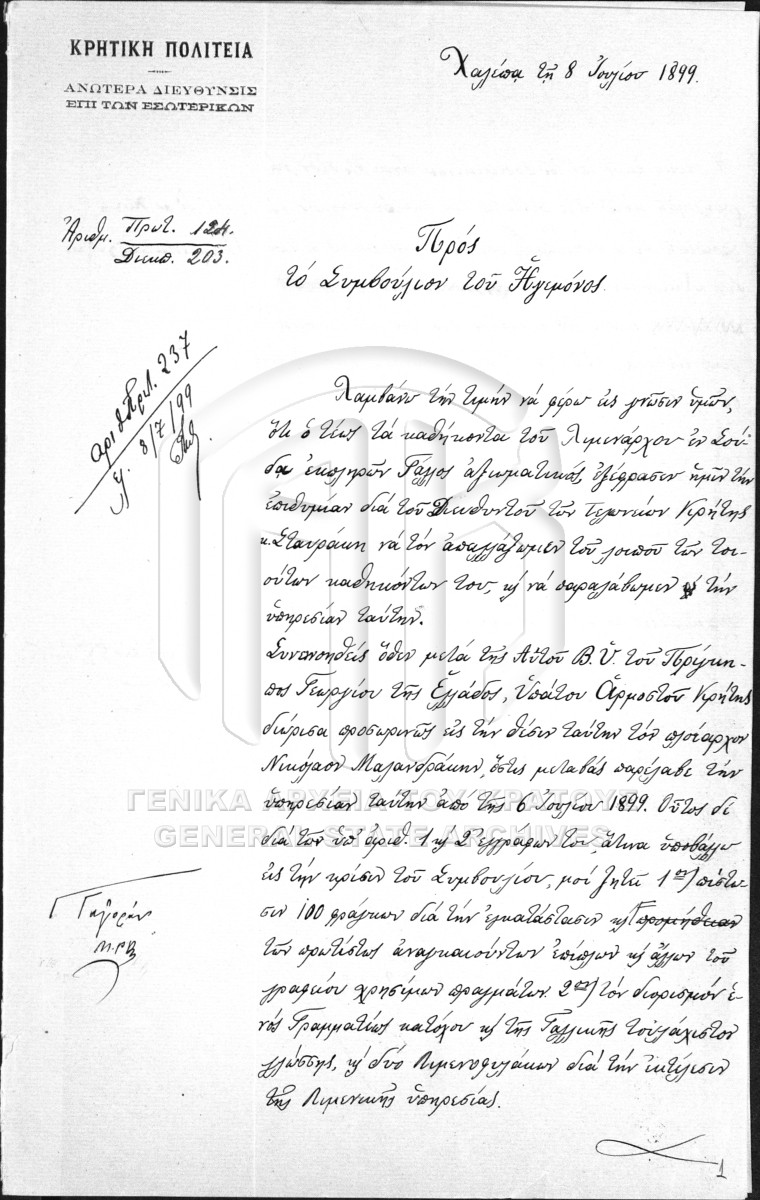 ΚΡΗΤΙΚΗ ΠΟΛΙΤΕΙΑ
ΑΝΩΤΕΡΑ ΔΙΕΥΘΥΝΣΙΣ
ΕΠΙ ΤΩΝ ΕΣΩΤΕΡΙΚΩΝ
Χαλέπα τῇ 8 Ἰουλίου 1899.
Ἀριθμ. Πρωτ. 124.
Διεκπ. 203.
Πρὸς
τὸ Συμβούλιον τοῦ Ἡγεμόνος.
αριθ Πρωτ. 237
8/7/99
Λαμβάνω τὴν τιμὴν νὰ φέρω εἰς γνῶσιν ὑμῶν,
ὅτι ὁ τέως τὰ καθήκοντα τοῦ Λιμενάρχου ἐν Σού-
δᾳ ἐκπληρῶν Γάλλος ἀξιωματικός, ἐξέφρασεν ἡμῖν τὴν
ἐπιθυμίαν διὰ τοῦ Διευθυντοῦ τῶν τελωνείων Κρήτης
κ. Σταυράκη νὰ τὸν ἀπαλλάξωμεν τοῦ λοιποῦ τῶν τοι-
ούτων καθηκόντων του, κ νὰ παραλάβωμεν τὴν
ὑπηρεσίαν ταύτην.
Συνεννοηθεὶς ὅθεν μετὰ τῆς Αὐτοῦ Β. Ὑ. τοῦ Πρίγκη-
πος Γεωργίου τῆς Ἑλλάδος, Ὑπάτου Ἁρμοστοῦ Κρήτης
διώρισα προσωρινῶς εἰς τὴν θέσιν ταύτην τὸν πλοίαρχον
Νικόλαον Μαλανδράκην, ὅστις μεταβὰς παρέλαβε τὴν
ὑπηρεσίαν ταύτην ἀπὸ τῆς 6 Ἰουλίου 1899. Οὗτος δὲ
διὰ τῶν ὑπ' ἀριθ. 1 κ 2 ἐγγράφων του, ἅτινα ὑποβάλλω
εἰς τὴν κρίσιν τοῦ Συμβουλίου, μοὶ ζητεῖ 1ον) πίστω-
σιν 100 φράγκων διὰ τὴν ἐγκατάστασιν κ προμήθειαν
τῶν πρωτίστως ἀναγκαιούντων ἐπίπλων κ ἄλλων τοῦ
γραφείου χρησίμων πραγμάτων. 2ον) τὸν διορισμὸν ἑ-
νὸς Γραμματέως κατόχου κ τῆς Γαλλικῆς τοὐλάχιστον
γλώσσης, κ δύο Λιμενοφυλάκων διὰ τὴν ἐκτέλεσιν
τῆς Λιμενικῆς ὑπηρεσίας.
ΓΕΝΙΚΑ ΑΡΧΕΙΑ ΤΟΥ ΚΡΑΤΟΥΣ
GENERAL STATE ARCHIVES
1